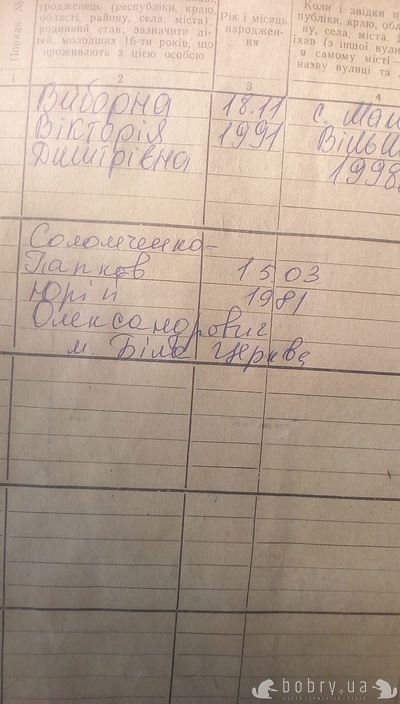 Порядк №
уродженець (республіки, краю
області, району, села, міста),
родинний стан; зазначити ді-
тей, молодших 16-ти років, що
проживають з цією особою
Рік і місяць
народжен-
ня
Коли і звідки п
публіки, краю, обл
ну, села, міста.
їхав (з іншої вули
в самому місті —
назву вулиці та
1
2
3
4
Виборна
Вікторія
Дмитрівна
18.11
1991
с. Мал
Вільш
1998
Соломченко-
Папков
Юрій
Олександрович
м. Біла Церква
15 03
1981
bobry.ua